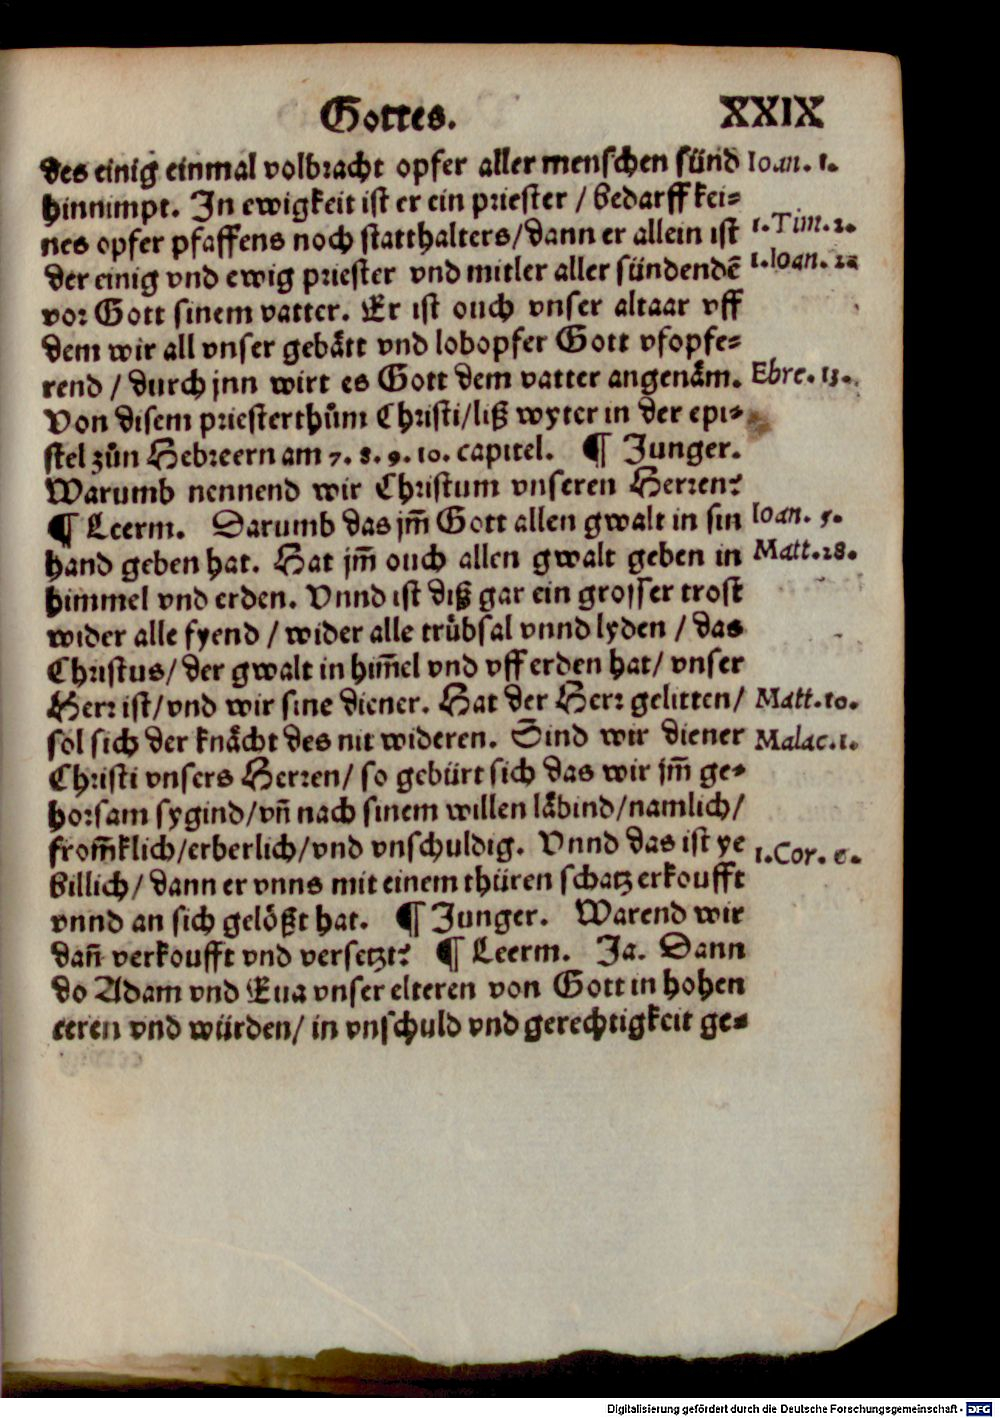 Gottes. XXIX
des einig einmal volbracht opfer aller menschen sünd Ioan. 1.
hinnimpt. In ewigkeit ist er ein priester / bedarff kei=
nes opfer pfaffens noch statthalters/dann er allein ist 1.Tim.2.
der einig vnd ewig priester vnd mitler aller sündendẽ 1.Ioan. 2.
vor Gott sinem vatter. Er ist ouch vnser altaar vff
dem wir all vnser gebått vnd lobopfer Gott vfopfe=
rend / durch jnn wirt es Gott dem vatter angenåm. Ebre. 13.
Von disem priesterthům Christi/liß wyter in der epi=
stel zůn Hebreern am 7. 8. 9. 10. capitel. ¶ Junger.
Warumb nennend wir Christum vnseren Herren?
¶ Leerm. Darumb das jm̃ Gott allen gwalt in sin Ioan. 5.
hand geben hat. Hat jm̃ ouch allen gwalt geben in Matt.28.
himmel vnd erden. Vnnd ist diß gar ein grosser trost
wider alle fyend / wider alle trůbsal vnnd lyden / das
Christus/ der gwalt in him̃el vnd vff erden hat/ vnser
Herr ist/vnd wir sine diener. Hat der Herr gelitten/ Matt.10.
sol sich der knåcht des nit wideren. Sind wir diener Malac.1.
Christi vnsers Herren/ so gebürt sich das wir jm̃ ge=
horsam sygind/vñ nach sinem willen låbind/namlich/
from̃klich/erberlich/vnd vnschuldig. Vnnd das ist ye 1.Cor. 6.
billich/ dann er vnns mit einem thüren schatz erkoufft
vnnd an sich gelößt hat. ¶ Junger. Warend wir
dañ verkoufft vnd versetzt? ¶ Leerm. Ja. Dann
do Adam vnd Eua vnser elteren von Gott in hohen
eeren vnd würden/ in vnschuld vnd gerechtigkeit ge=
Digitalisierung gefördert durch die Deutsche Forschungsgemeinschaft - DFG